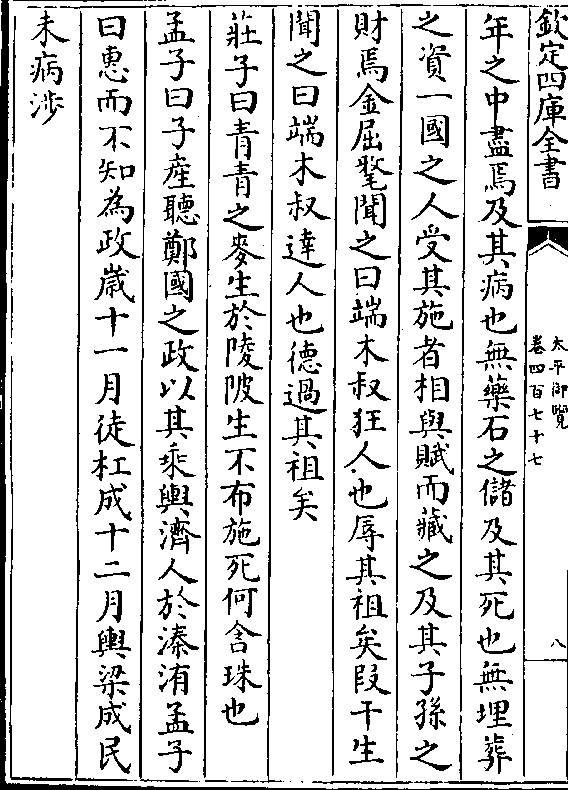 欽定四庫全書
太平御覽
卷四百七十七
八
年之中盡焉及其病也無藥石之儲及其死也無埋葬
之資一國之人受其施者相與賦而藏之及其子孫之
財焉金屈氂聞之曰端木叔狂人也辱其祖矣段干生
聞之曰端木叔達人也德過其祖矣
莊子曰青青之麥生於陵陂生不布施死何含珠也
孟子曰子產聽鄭國之政以其乘輿濟人於溱洧孟子
曰惠而不知為政歲十一月徒杠成十二月輿梁成民
未病涉